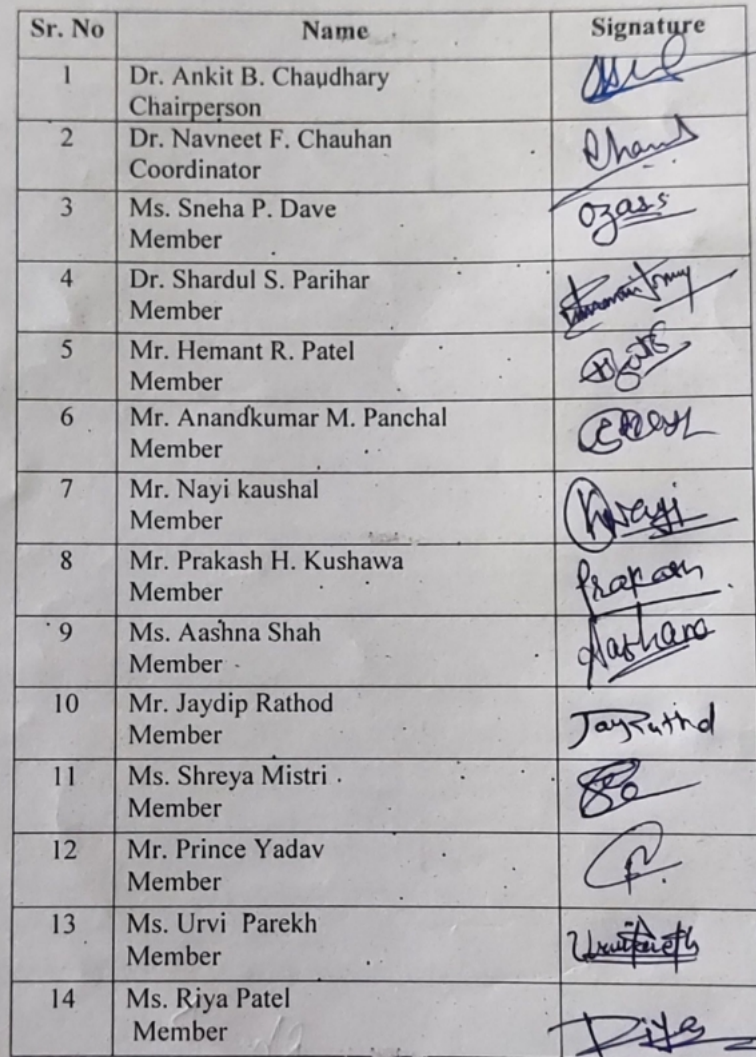 Sr. No Name Signature
1 Dr. Ankit B. Chaudhary
Chairperson
2 Dr. Navneet F. Chauhan
Coordinator
3 Ms. Sneha P. Dave
Member
4 Dr. Shardul S. Parihar
Member
5 Mr. Hemant R. Patel
Member
6 Mr. Anandkumar M. Panchal
Member
7 Mr. Nayi kaushal
Member
8 Mr. Prakash H. Kushawa Prakash
Member
9 Ms. Aashna Shah
Member
10 Mr. Jaydip Rathod
Member
11 Ms. Shreya Mistri
Member
12 Mr. Prince Yadav
Member
13 Ms. Urvi Parekh
Member
14 Ms. Riya Patel
Member